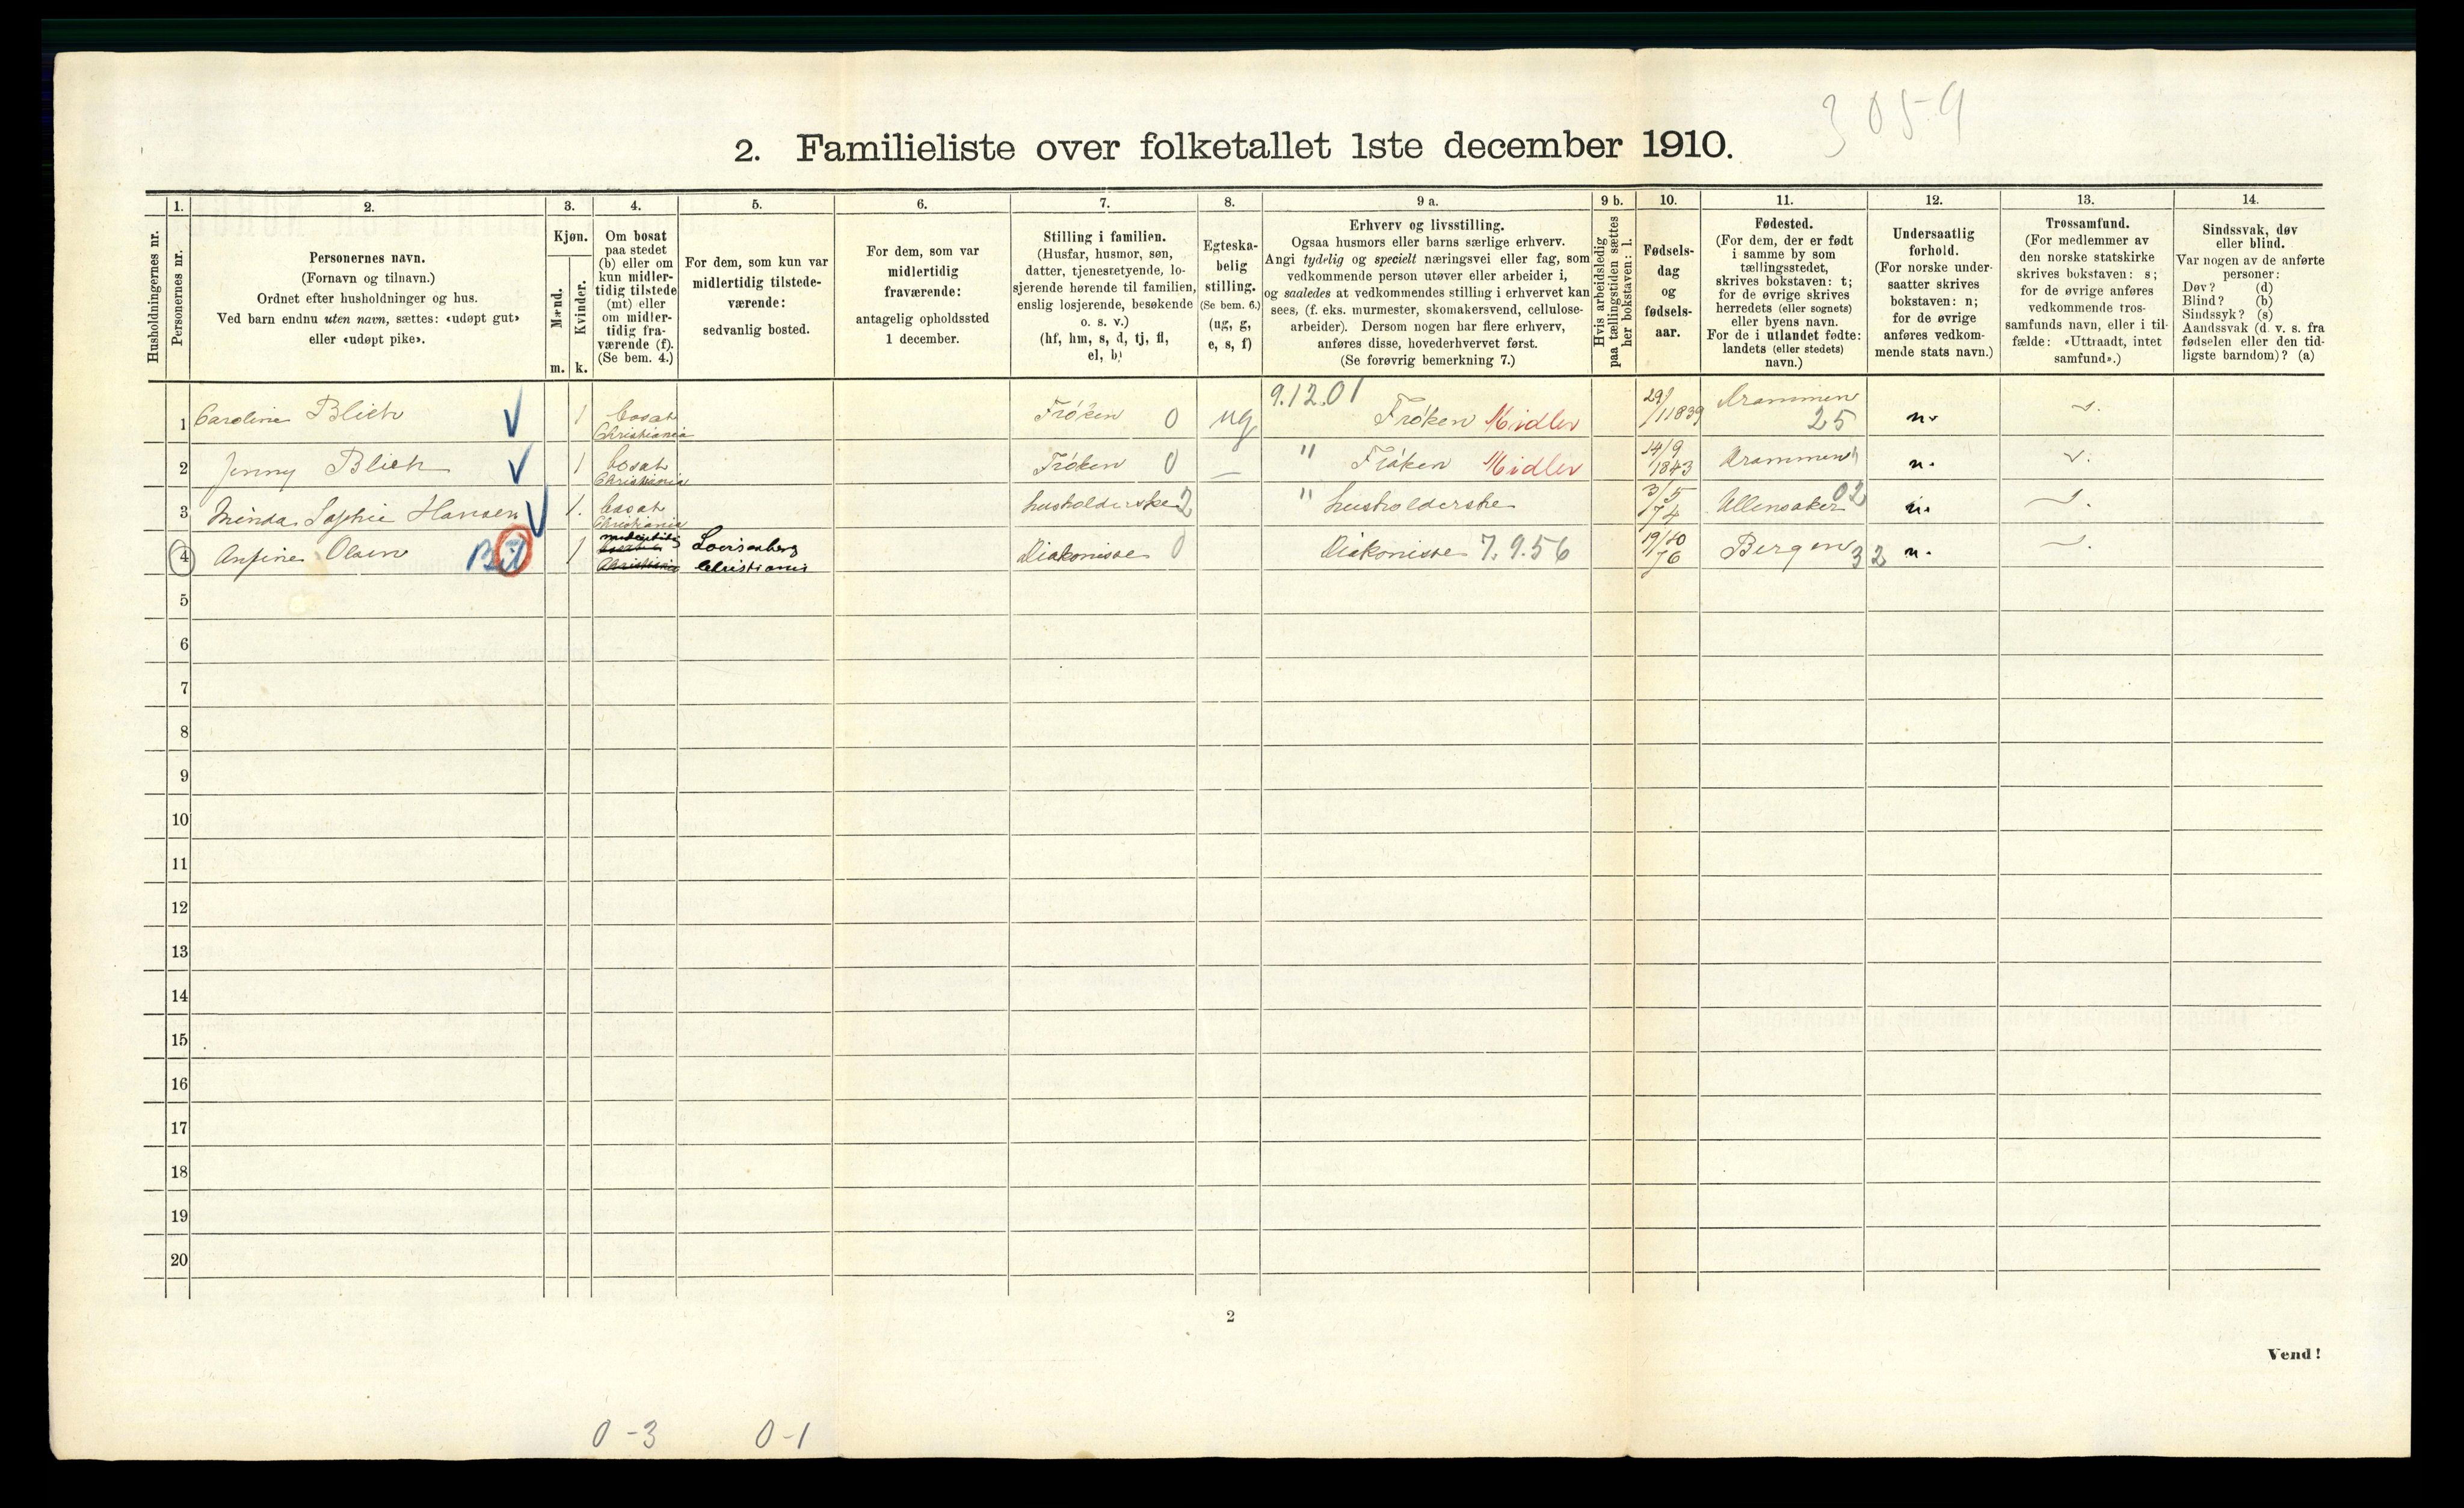 3059
2. Familieliste over folketallet 1ste december 1910.
Husholdningernes nr.
1.
Personernes nr.
2.
Personernes navn.
(Fornavn og tilnavn.)
Ordnet efter husholdninger og hus.
Ved barn endnu uten navn, sættes: «udøpt gut»
eller «udøpt pike».
3.
Kjøn.
Mænd.
Kvinder.
m. k.
4.
Om bosat
paa stedet
(b) eller om
kun midler-
tidig tilstede
(mt) eller
om midler-
tidig fra-
værende (f).
(Se bem. 4.)
5.
For dem, som kun var
midlertidig tilstede-
værende:
sedvanlig bosted.
6.
For dem, som var
midlertidig
fraværende:
antagelig opholdssted
1 december.
7.
Stilling i familien.
(Husfar, husmor, søn,
datter, tjenestetyende, lo-
sjerende hørende til familien,
enslig losjerende, besøkende
o. s. v.)
(hf, hm, s, d, tj, fl,
el, b)
8.
Egteska-
belig
stilling.
(Se bem. 6.)
(ug, g,
e, s, f)
9 a.
Erhverv og livsstilling.
Ogsaa husmors eller barns særlige erhverv.
Angi tydelig og specielt næringsvei eller fag, som
vedkommende person utøver eller arbeider i,
og saaledes at vedkommendes stilling i erhvervet kan
sees, (f. eks. murmester, skomakersvend, cellulose-
arbeider). Dersom nogen har flere erhverv,
anføres disse, hovederhvervet først.
(Se forøvrig bemerkning 7.)
9 b.
Hvis arbeidsledig
paa tællingstiden sættes
her bokstaven: l.
10.
Fødsels-
dag
og
fødsels-
aar.
11.
Fødested.
(For dem, der er født
i samme by som
tællingsstedet,
skrives bokstaven: t;
for de øvrige skrives
herredets (eller sognets)
eller byens navn.
For de i utlandet fødte:
landets (eller stedets)
navn.)
12.
Undersaatlig
forhold.
(For norske under-
saatter skrives
bokstaven: n;
for de øvrige
anføres vedkom-
mende stats navn.)
13.
Trossamfund.
(For medlemmer av
den norske statskirke
skrives bokstaven: s;
for de øvrige anføres
vedkommende tros-
samfunds navn, eller i til-
fælde: «Uttraadt, intet
samfund».)
14.
Sindssvak, døv
eller blind.
Var nogen av de anførte
personer:
Døv? (d)
Blind? (b)
Sindssyk? (s)
Aandssvak (d. v. s. fra
fødselen eller den tid-
ligste barndom)? (a)
1 Caroline Blich 1 bosat Christiania Frøken 0 ug 9.12.01 Frøken Midler 29/11 1839 Drammen 25 n. s.
2 Jenny Blich 1 bosat Christiania Frøken 0 — " Frøken Midler 14/9 1843 Drammen " n. s.
3 Minda Sophie Hansen 1. bosat Christiania husholderske 2 " husholderske 3/5 74 Ullensaker 02 n. s.
4 Anfine Olsen 1 Lovisenberg Christiania Diakonisse 0 Diakonisse 7.9.56 19/10 76 Bergen 32 n. s.
5
6
7
8
9
10
11
12
13
14
15
16
17
18
19
20
2
Vend!
0-3 0-1